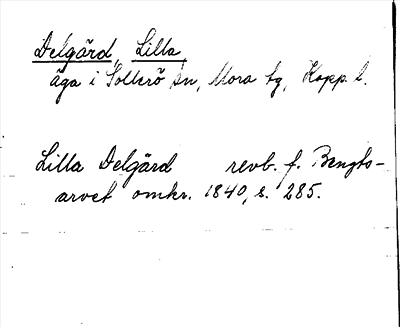 Delgärd, Lilla,
äga i Sollerö sn, Mora tg, Kopp. l.
Lilla Delgärd revb. f. Bengts-
arvet omkr. 1840, s. 285.